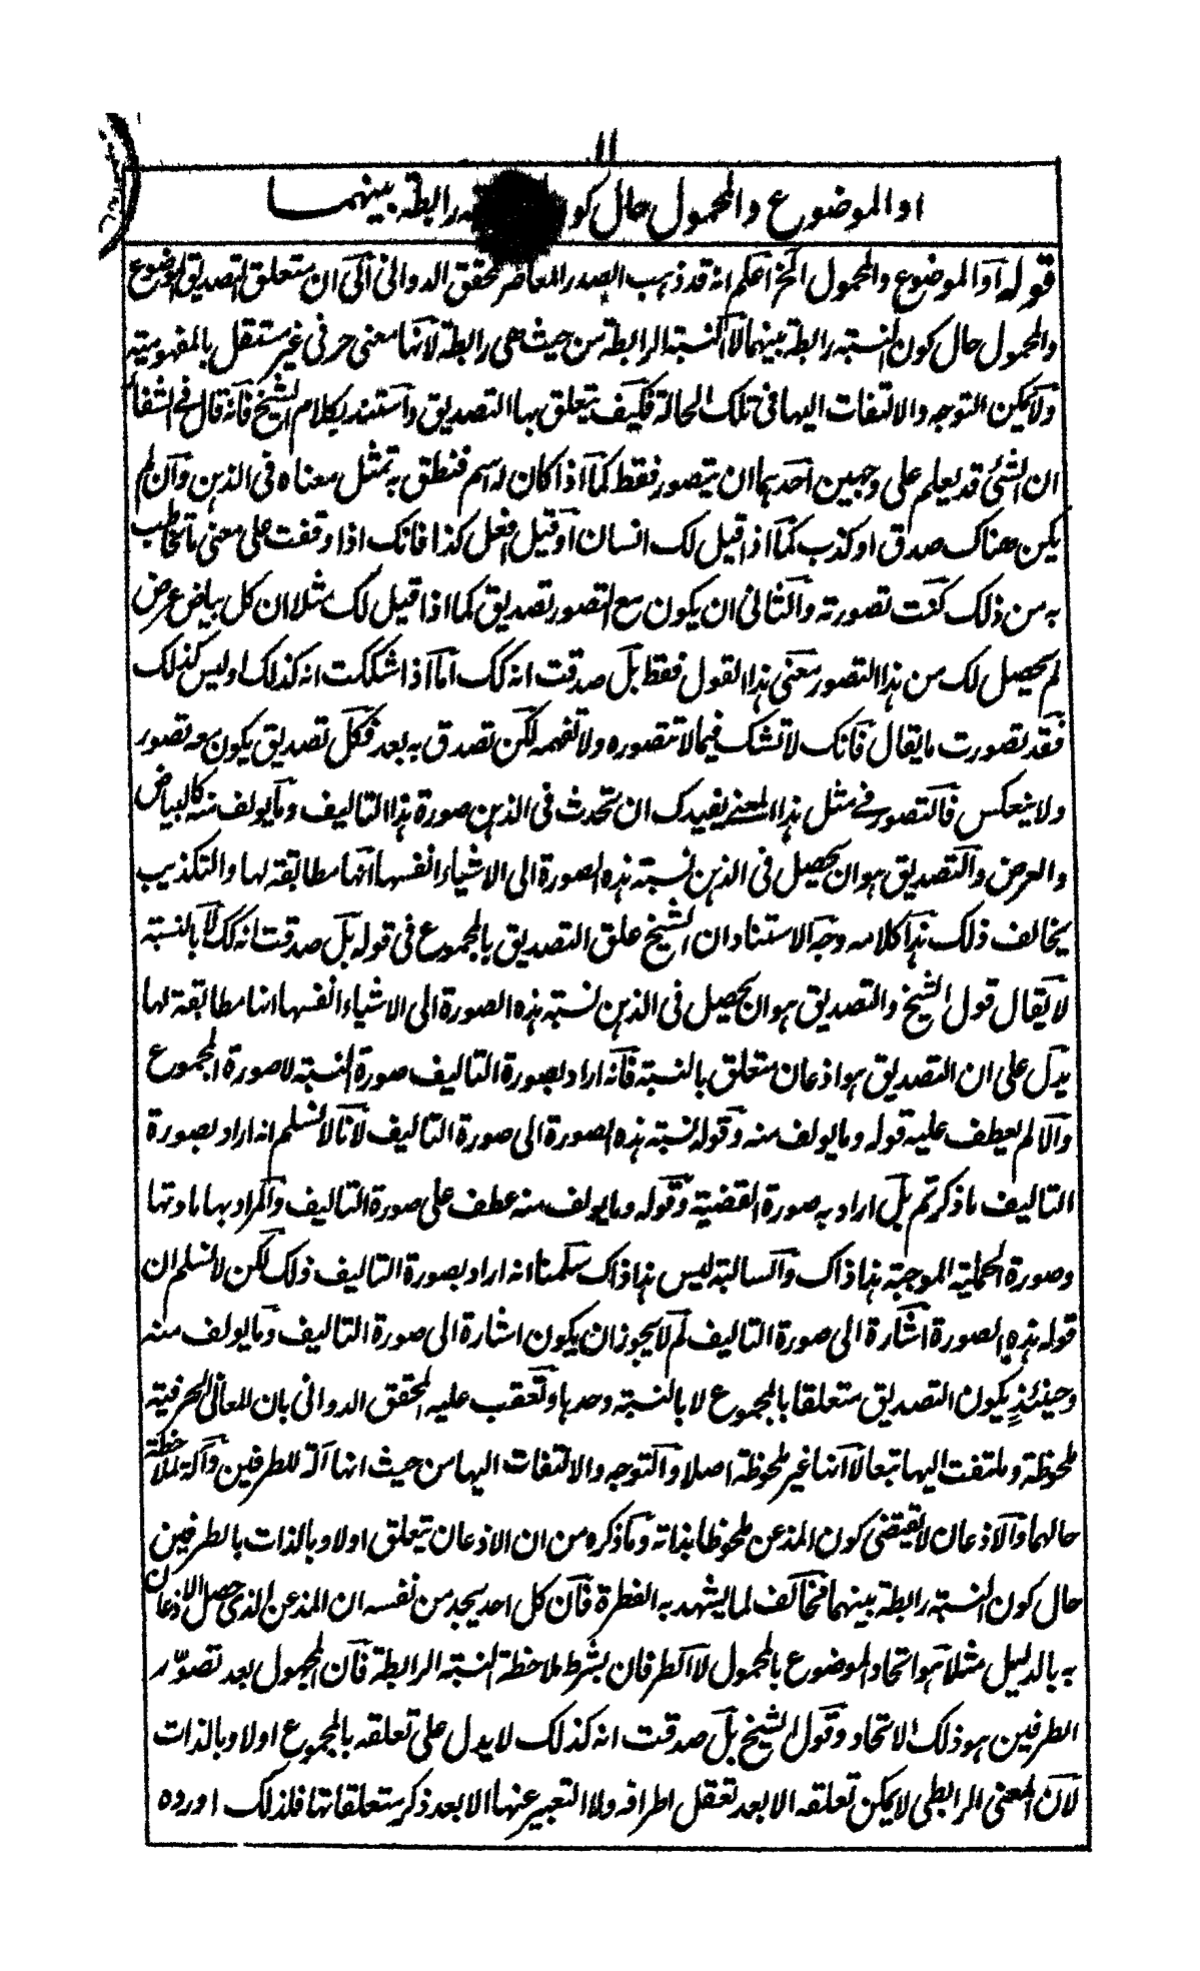 ١١
او الموضوع والمحمول حال كو رابطة بينهما
قوله او الموضوع والمحمول الخ اعلم انه قد ذهب الصدر المعاصر للمحقق الدوانى الى ان متعلق التصديق الموضوع
والمحمول حال كون النسبته رابطة بينهما لا النسبته الرابطة من حيث هى رابطة لانها معنى حرفى غير مستقل بالمفهومية
ولا يمكن التوجه والالتفات اليها فى تلك الحالة فكيف يتعلق بها التصديق واستند بكلام الشيخ فانه قال فى الشفاء
ان الشئ قد يعلم على وجهين احدهما ان يتصور فقط كما اذا كان له اسم فنطق به تمثل معناه فى الذهن وان لم
يكن هناك صدق او كذب كما اذا قيل لك انسان او قيل افعل كذا فانك اذا وقفت على معنى ما تخاطب
به من ذلك كنت تصورته والثانى ان يكون مع التصور تصديق كما اذا قيل لك مثلا ان كل بياض عرض
لم يحصل لك من هذا التصور معنى هذا القول فقط بل صدقت انه كك اما اذا شككت انه كذلك او ليس كذلك
فقد تصورت ما يقال فانك لا تشك فيما لا تتصوره ولا تفهمه لكن تصدق به بعد فكل تصديق يكون معه تصور
ولا ينعكس فالتصور فى مثل هذا المعنى يفيدك ان تحدث فى الذهن صورة هذا التاليف وما يولف منه كالبياض
والعرض والتصديق هو ان يحصل فى الذهن نسبته هذه الصورة الى الاشياء انفسها انها مطابقة لها والتكذيب
يخالف ذلك هذا كلامه وجه الاستناد ان الشيخ علق التصديق بالمجموع فى قوله بل صدقت انه كك لا بالنسبته
لا يقال قول الشيخ والتصديق هو ان يحصل فى الذهن نسبته هذه الصورة الى الاشياء انفسها انها مطابقة لها
يدل على ان التصديق هو اذعان متعلق بالنسبته فانه اراد بصورة التاليف صورة النسبته لا صورة المجموع
والا لم يعطف عليه قوله وما يولف منه وقوله نسبته هذه الصورة الى صورة التاليف لانا لا نسلم انه اراد بصورة
التاليف ما ذكرتم بل اراد به صورة القضية وقوله وما يولف منه عطف على صورة التاليف والمراد بها مادتها
وصورة الحملية الموجبة هذا ذاك والسالبة ليس هذا ذاك سلمنا انه اراد بصورة التاليف ذلك لكن لا نسلم ان
قوله هذه الصورة اشارة الى صورة التاليف لم لا يجوز ان يكون اشارة الى صورة التاليف وما يولف منه
وحينئذ يكون التصديق متعلقا بالمجموع لا بالنسبته وحدها وتعقب عليه المحقق الدوانى بان المعانى الحرفية
ملحوظة وملتفت اليها تبعا لا انها غير ملحوظة اصلا والتوجه والالتفات اليها من حيث انها آلة للطرفين وآلة لملاحظة
حالهما والاذعان لا يقتضى كون المذعن ملحوظا بذاته وما ذكره من ان الاذعان يتعلق اولا وبالذات بالطرفين
حال كون النسبته رابطة بينهما فمخالف لما يشهد به الفطرة فان كل احد يجد من نفسه ان المذعن الذى حصل الاذعان
به بالدليل مثلا هو اتحاد الموضوع بالمحمول لا الطرفان بشرط ملاحظة النسبته الرابطة فان المجهول بعد تصوّر
الطرفين هو ذلك الاتحاد وقول الشيخ بل صدقت انه كذلك لا يدل على تعلقه بالمجموع اولا وبالذات
لان المعنى الرابطى لا يمكن تعلقه الا بعد تعقل اطرافه ولا التعبير عنها الا بعد ذكر متعلقاتها فلذلك اورده